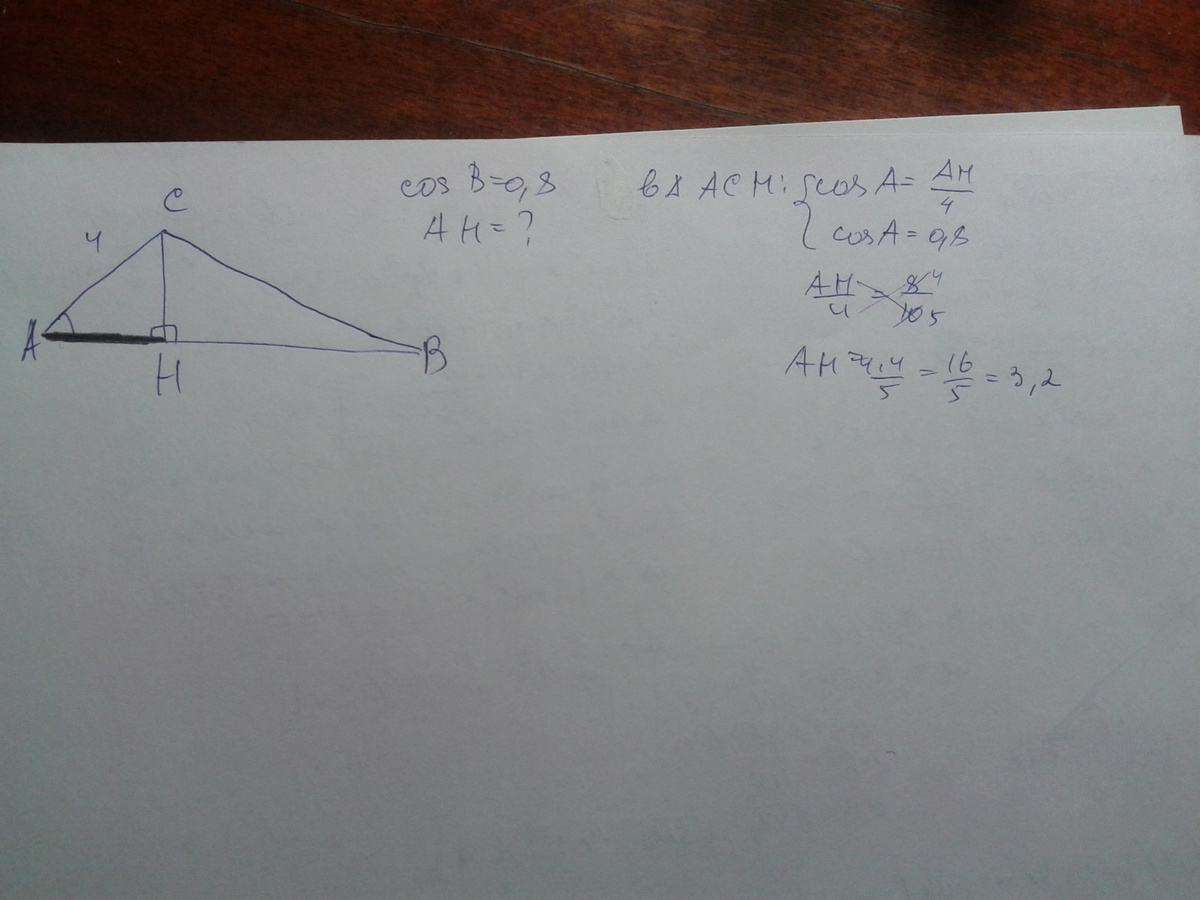 C
4
A
H
B
cos B=0,8
AH=?
в Δ ACH: { cos A= AH/4
cosA= 0,8
AH/4 = 8 4/10 5
AH = 4.4/5 = 16/5 = 3,2